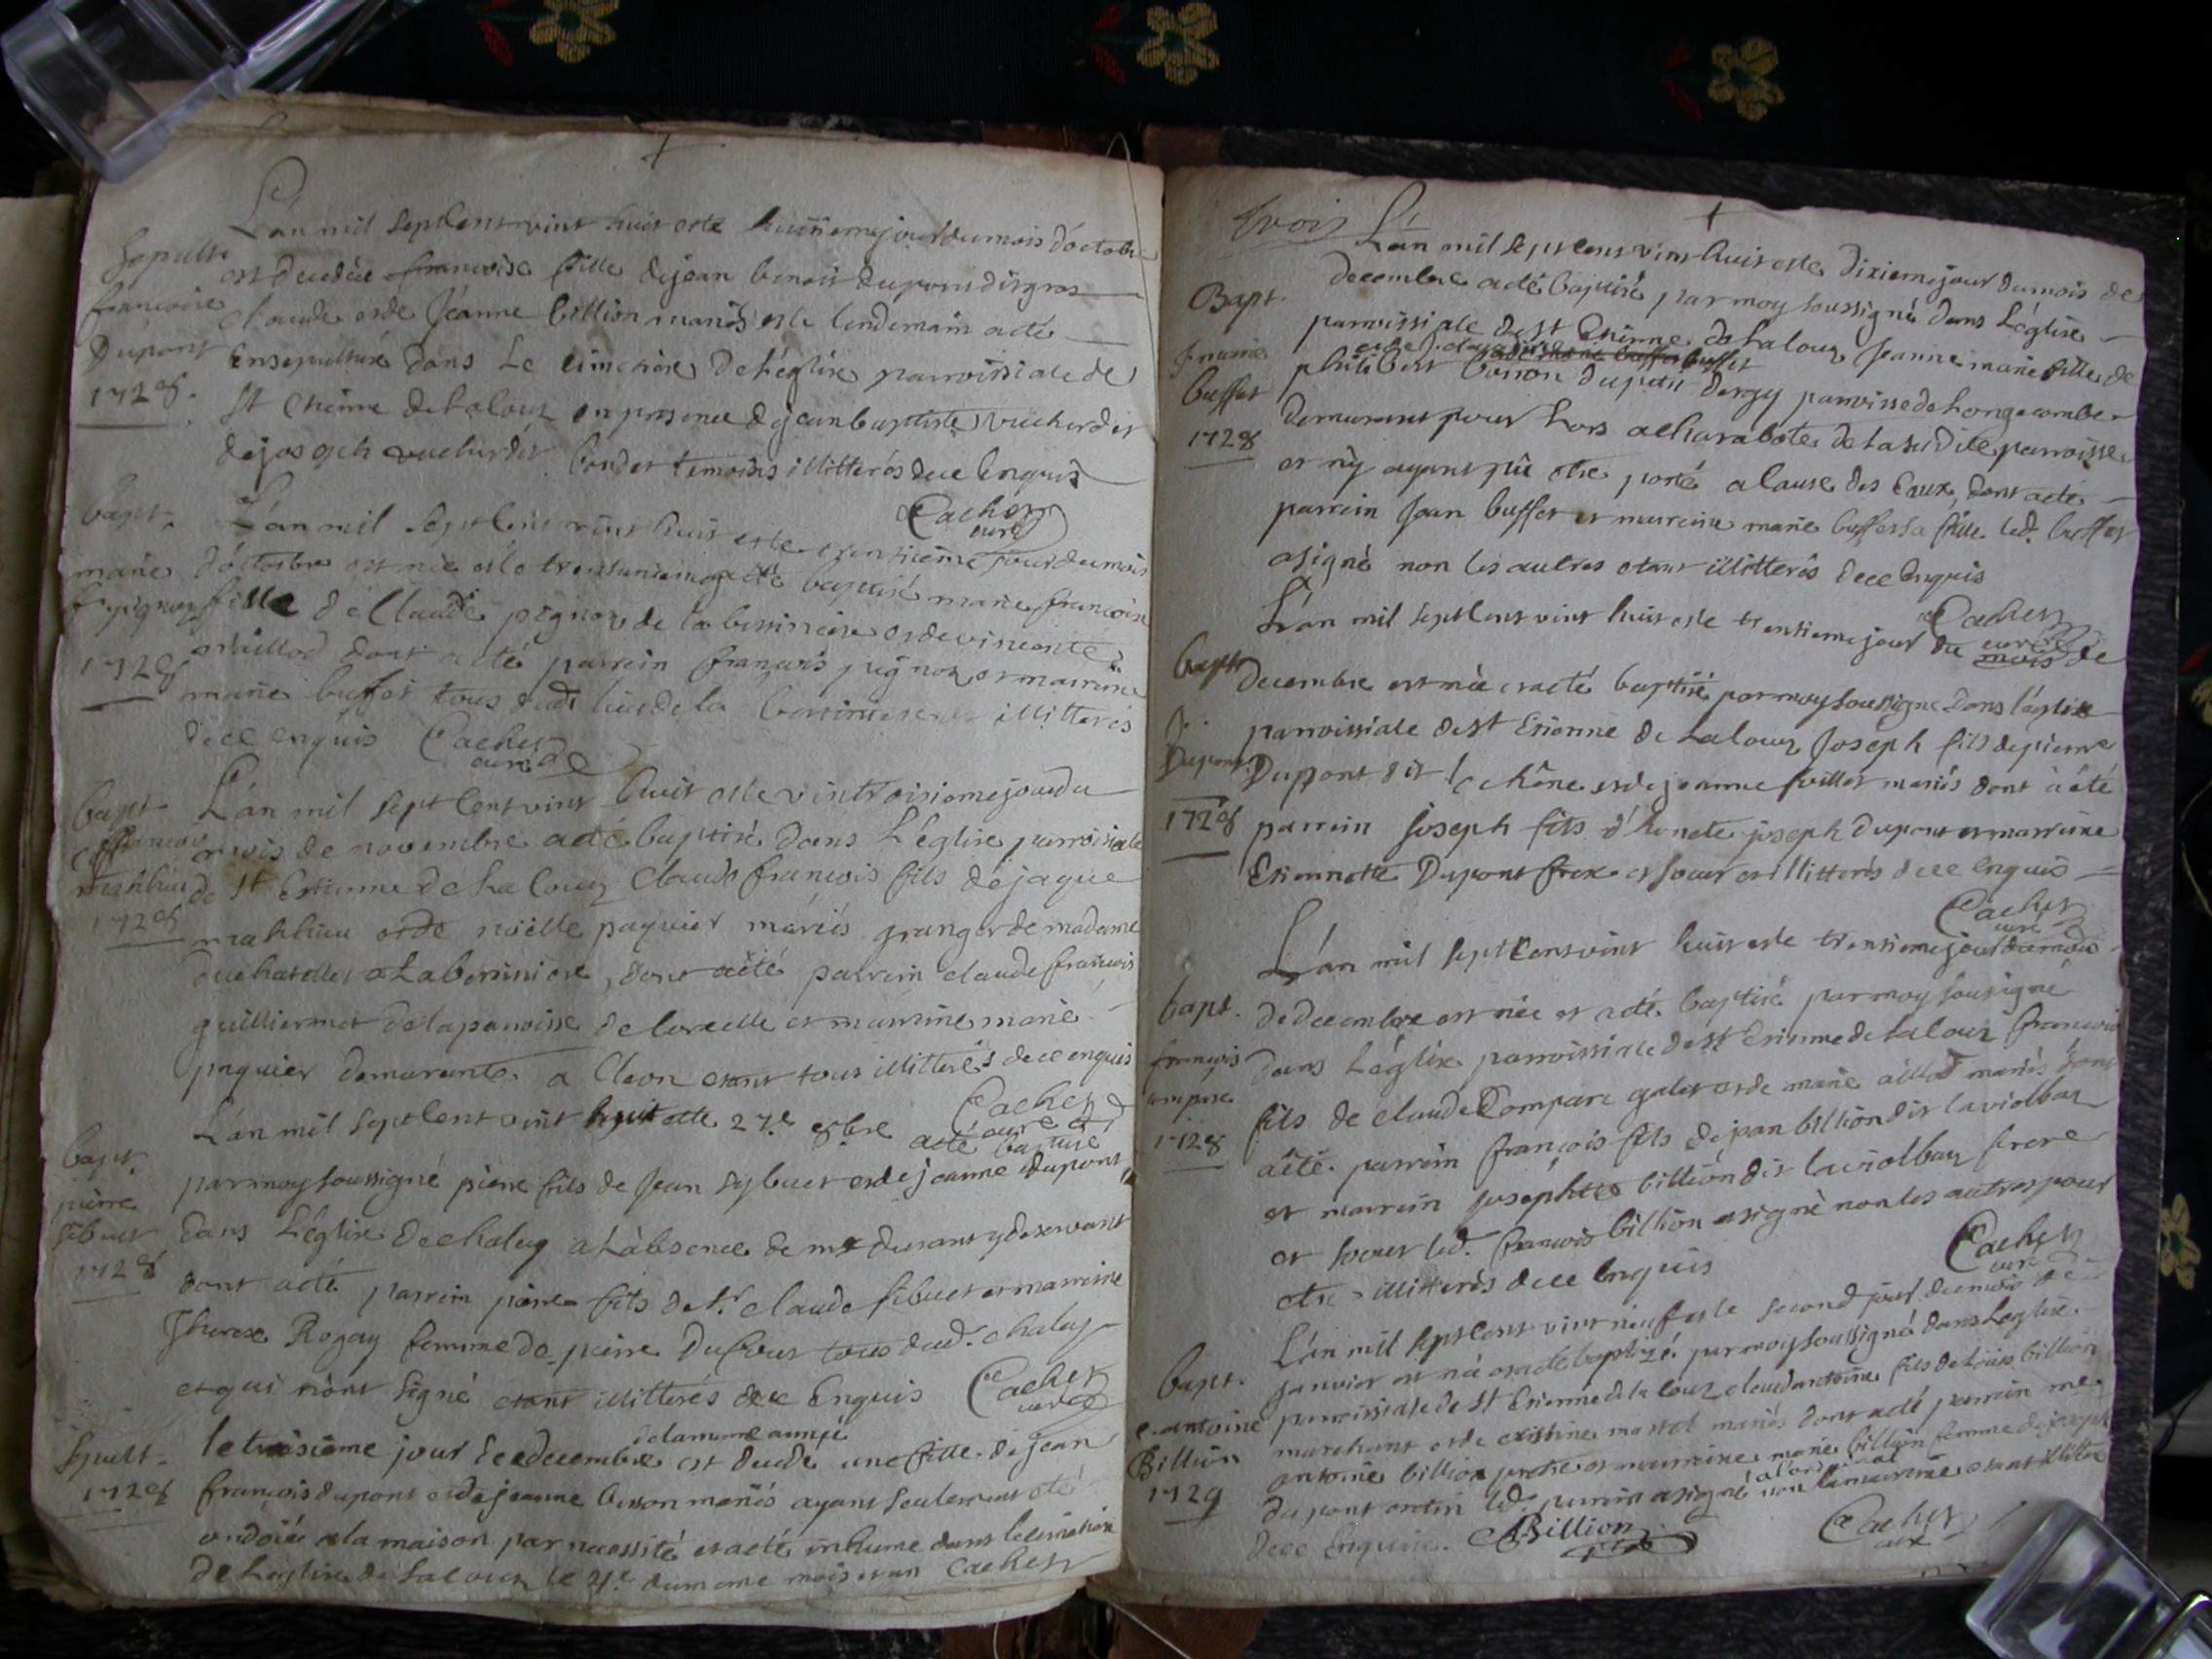 L'an mil sept cent vint huit et le huitieme jour du mois d'octobre
Sepult. est decedée francoise fille de jean benoit dupont dit gros
francoise claude et de Jeanne billion mariés et le lendemain a eté
Dupont ensepulturé dans Le cimetiere De l'eglise parroissiale de
1728. St Etienne de Lalouz en presence de jean baptiste vuicherd et
de joseph vuicherdet temoins illitterés de ce enquis
Cachet
curé
bapt. L'an mil sept cent vint huit et le trentieme jour du mois
marie d'octobre est née et le trentunieme a eté baptisé marie francoise
f. pignoz fille de Claude pignoz de la bessiniere et de vincente
1728 maillod dont a eté parrein francois pignoz et marreine
marie buffet tous dudt lieu de la bessiniere et illitterés
de ce enquis Cachet
curé
bapt L'an mil sept cent vint huit et le vintroisieme jour du
c. francois mois de novembre a eté baptisé dans L'eglise parroissiale
mathieu de St Estienne de Lalouz Claude francois fils de jaque
1728 mathieu et de noielle paquier mariés granger de madame
a La bessiniere, dont a eté parrein claude francois
guilliermet de la parroisse de et marreine marie
paquier demurante a Cleon etant tous illitterés de ce enquis
Cachet
curé
L'an mil sept cent vint huit et le 27.e 8bre a eté baptisé
bapt. par moy soussigné pierre fils de Jean Sybuet et de jeanne dupont
pierre
sibuet dans L'eglise de chaley a L'absence de mr durant y deservant
1728 dont a eté parrein pierre fils de Sr claude sibuet et marreine
Therese Rogay femme de pierre Dufour tous dud. chaley
et qui n'ont signé etant illitterés de ce enquis Cachet
curé
de la meme année
Sepult. le troisieme jour de decembre est decedé une fille de jean
1728 francois dupont et de jeanne besson mariés ayant seulement eté
ondoiée a la maison par necessité et a eté inhume dans le cimetiere
de L'eglise de Lalouz le 4.e du meme mois et an Cachet
trois
L'an mil sept cent vint huit et le dixieme jour du mois de
Bapt. decembre a eté baptisé par moy soussigné dans L'eglise
parroissiale de St Etienne de Lalouz Jeanne marie fille de
Jeanne
buffet philibert buffet
besson du petit dergy parroisse de Longecombe
1728 demurant pour Lors a charabote de la susdite parroisse
et n'y ayant pû etre porté a cause des Eaux, dont a eté
parrein Jean buffet et mareine marie buffet sa fille led. buffet
a signé non les autres etant illitterés de ce enquis
Cachet
curé
L'an mil sept cent vint huit et le trentieme jour du mois de
bapt decembre est née et a eté baptisé par moy soussigné dans l'eglise
J. parroissiale de St Etienne de Lalouz Joseph fils de pierre
Dupont Dupont dit le chêne et de jeanne mariés dont a eté
1728 parrein Joseph fils d'honete joseph dupont et marreine
Etiennette Dupont frere et soeur et illitterés de ce enquis
Cachet
curé
L'an mil sept cent vint huit et le trentieme jour du mois
bapt. de decembre est née et a eté baptisé par moy soussigné
francois dans L'eglise parroissiale de St Etienne de Lalouz francois
compare fils de claude Compare galet et de marie aillod mariés dont
1728 a eté parrein francois fils de jean billion dit laviolbaz
et marrein josephte billion dit laviolbaz frere
et soeur led. francois billion a signé non les autres pour
etre illitterés de ce enquis Cachet
curé
L'an mil sept cent vint neuf et le second jour du mois de
bapt. janvier est né et a eté baptizé par moy soussigné dans Leglise
c. antoine parroissiale de St Etienne de la louz claud antoine fils de Louis billion
Billion marchant et de cristine martel mariés dont a eté parrein me
1729 antoine billion pretre et marreine marie billion femme de joseph
a l'original
dupont led. parrein a signé non la marreine etant illitere
de ce enquise. Billion Cachet
curé